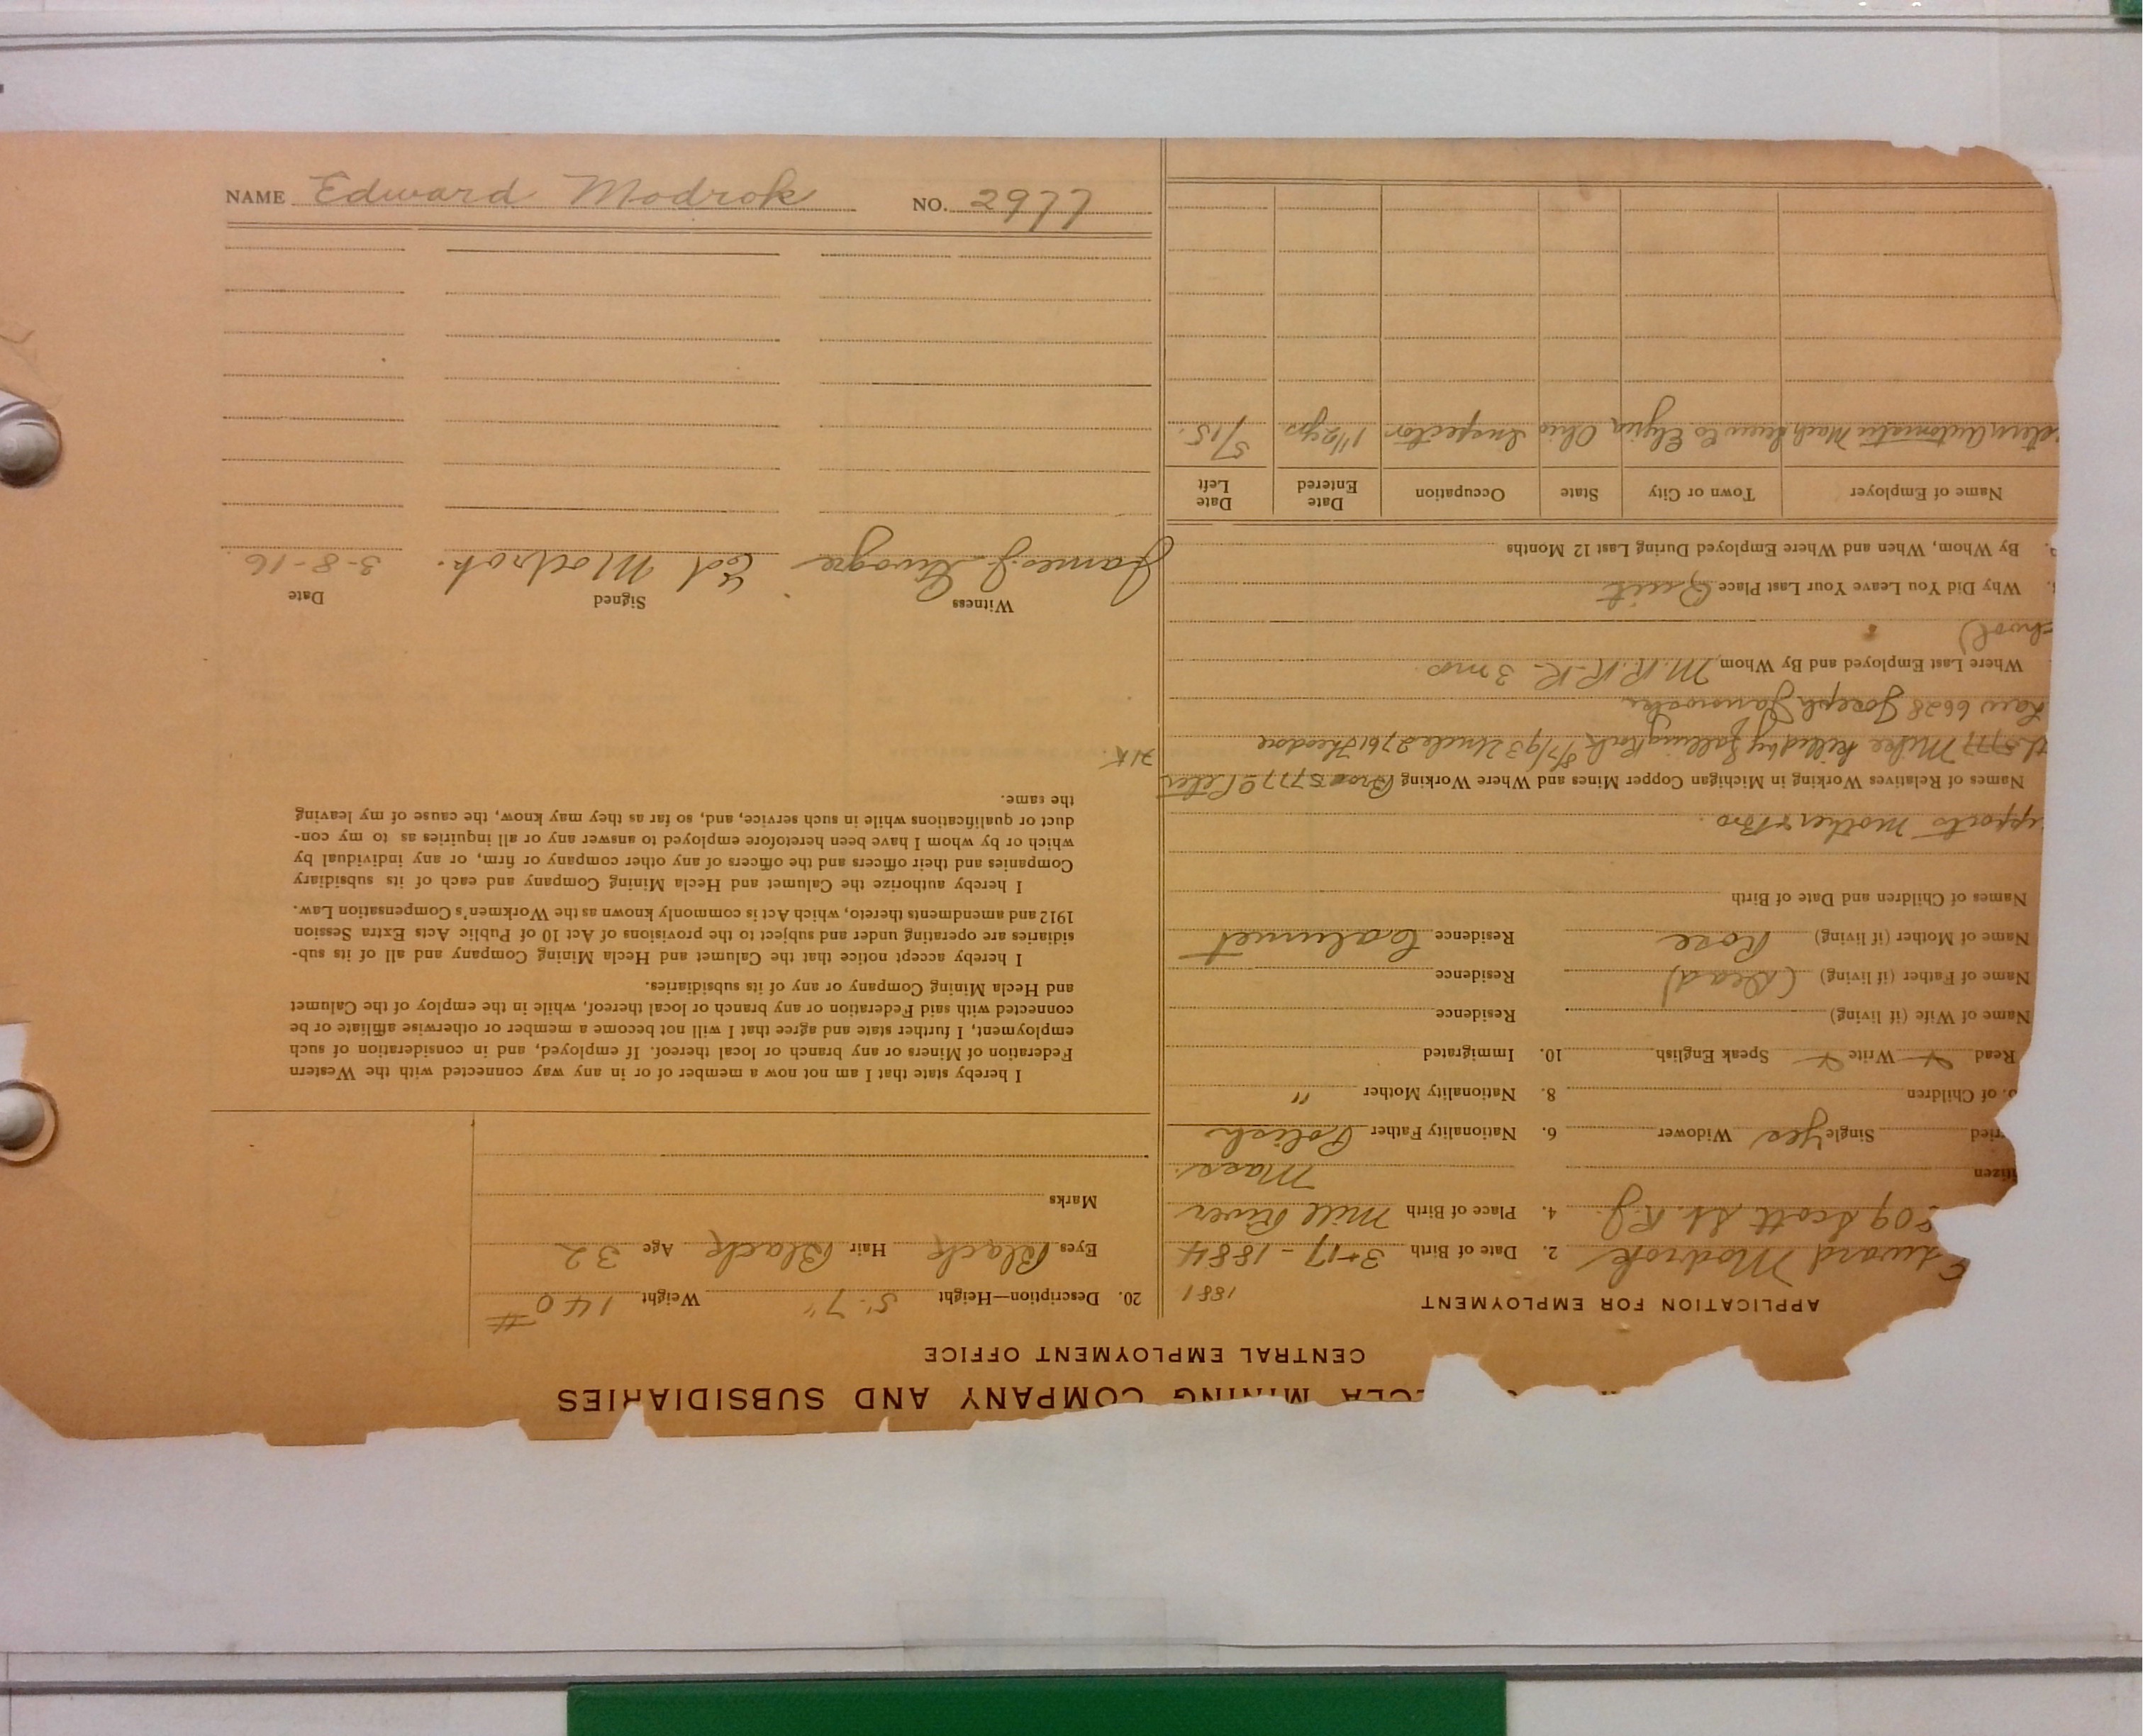 NAME Edward Modrok NO. 2977
CLA MINING COMPANY AND SUBSIDIARIES
CENTRAL EMPLOYMENT OFFICE
APPLICATION FOR EMPLOYMENT 1881
Edward Modrok 2. Date of Birth 3-17-1884
809 Scott St. R.J. 4. Place of Birth Mill River
itizen Mass.
ried Single Yes Widower 6. Nationality Father Polish
o. of Children 8. Nationality Mother "
Read x Write x Speak English 10. Immigrated
Name of Wife (if living) Residence
Name of Father (if living) (Dead) Residence
Name of Mother (if living) Rose Residence Calumet
Names of Children and Date of Birth
upports mother & Bro.
Names of Relatives Working in Michigan Copper Mines and Where Working Bros 5777 Peter
Mike killed by falling Rock 8/7/93 Uncle 2761 Theodore
Law 6628 Joseph
Where Last Employed and By Whom M.R.R.R. 3 mos.
Why Did You Leave Your Last Place Quit
By Whom, When and Where Employed During Last 12 Months
Name of Employer Town or City State Occupation Date Entered Date Left
Automatic Machine Co Elyria Ohio Inspector 1 1/2 yrs 5/15.
20. Description—Height 5' 7" Weight 140 #
Eyes Black Hair Black Age 32
Marks
I hereby state that I am not now a member of or in any way connected with the Western
Federation of Miners or any branch or local thereof. If employed, and in consideration of such
employment, I further state and agree that I will not become a member or otherwise affiliate or be
connected with said Federation or any branch or local thereof, while in the employ of the Calumet
and Hecla Mining Company or any of its subsidiaries.
I hereby accept notice that the Calumet and Hecla Mining Company and all of its sub-
sidiaries are operating under and subject to the provisions of Act 10 of Public Acts Extra Session
1912 and amendments thereto, which Act is commonly known as the Workmen's Compensation Law.
I hereby authorize the Calumet and Hecla Mining Company and each of its subsidiary
Companies and their officers and the officers of any other company or firm, or any individual by
which or by whom I have been heretofore employed to answer any or all inquiries as to my con-
duct or qualifications while in such service, and, so far as they may know, the cause of my leaving
the same.
Witness Signed Date
James J. Ed Modrok. 3-8-16.